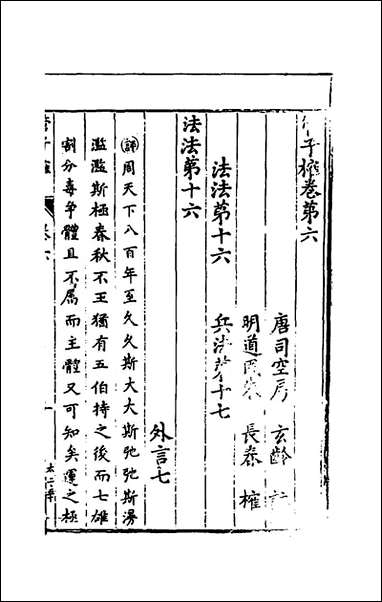 子榷卷第六
唐司空房玄齡
明道 朱長春榷
法法第十六 兵法第十七
法法第十六 外言七
評周天下八百年至久久斯大大斯弛弛斯漫
濫濫斯極春秋不王猶有五伯持之後而七雄
割分毒牟體且不屬而主體又可知矣運之極